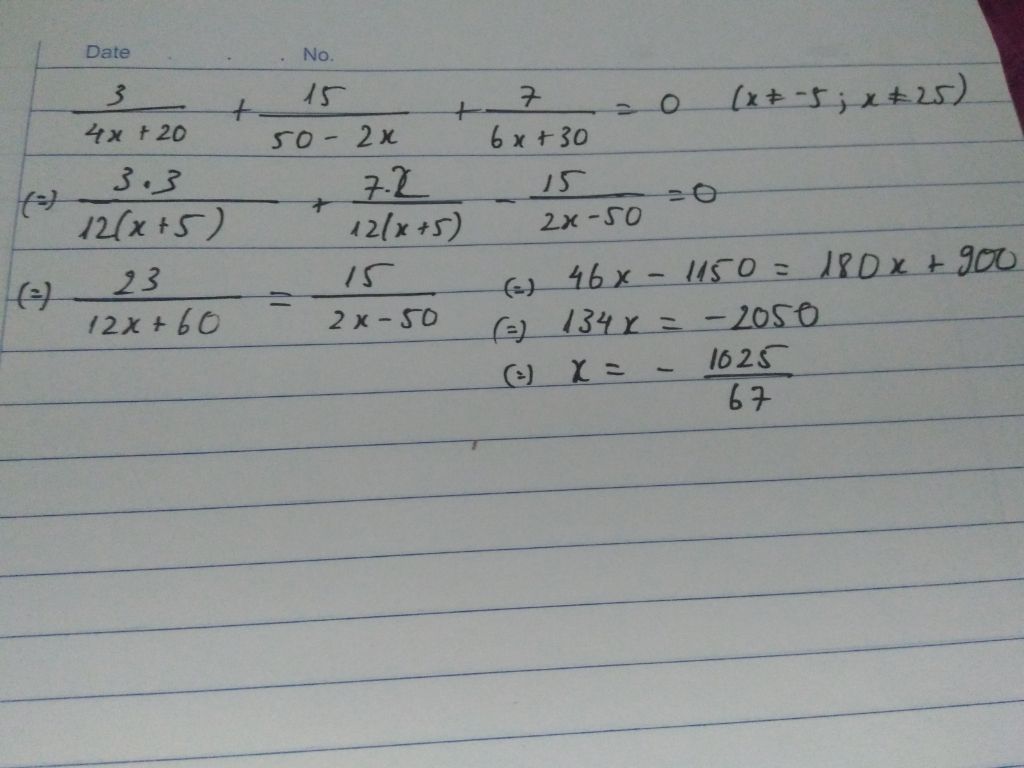 Date . . . No.
3/(4x + 20) + 15/(50 - 2x) + 7/(6x + 30) = 0 (x ≠ -5 ; x ≠ 25)
(=) 3.3/(12(x + 5)) + 7.2/(12(x + 5)) - 15/(2x - 50) = 0
(=) 23/(12x + 60) = 15/(2x - 50) (=) 46x - 1150 = 180x + 900
(=) 134x = -2050
(=) x = - 1025/67